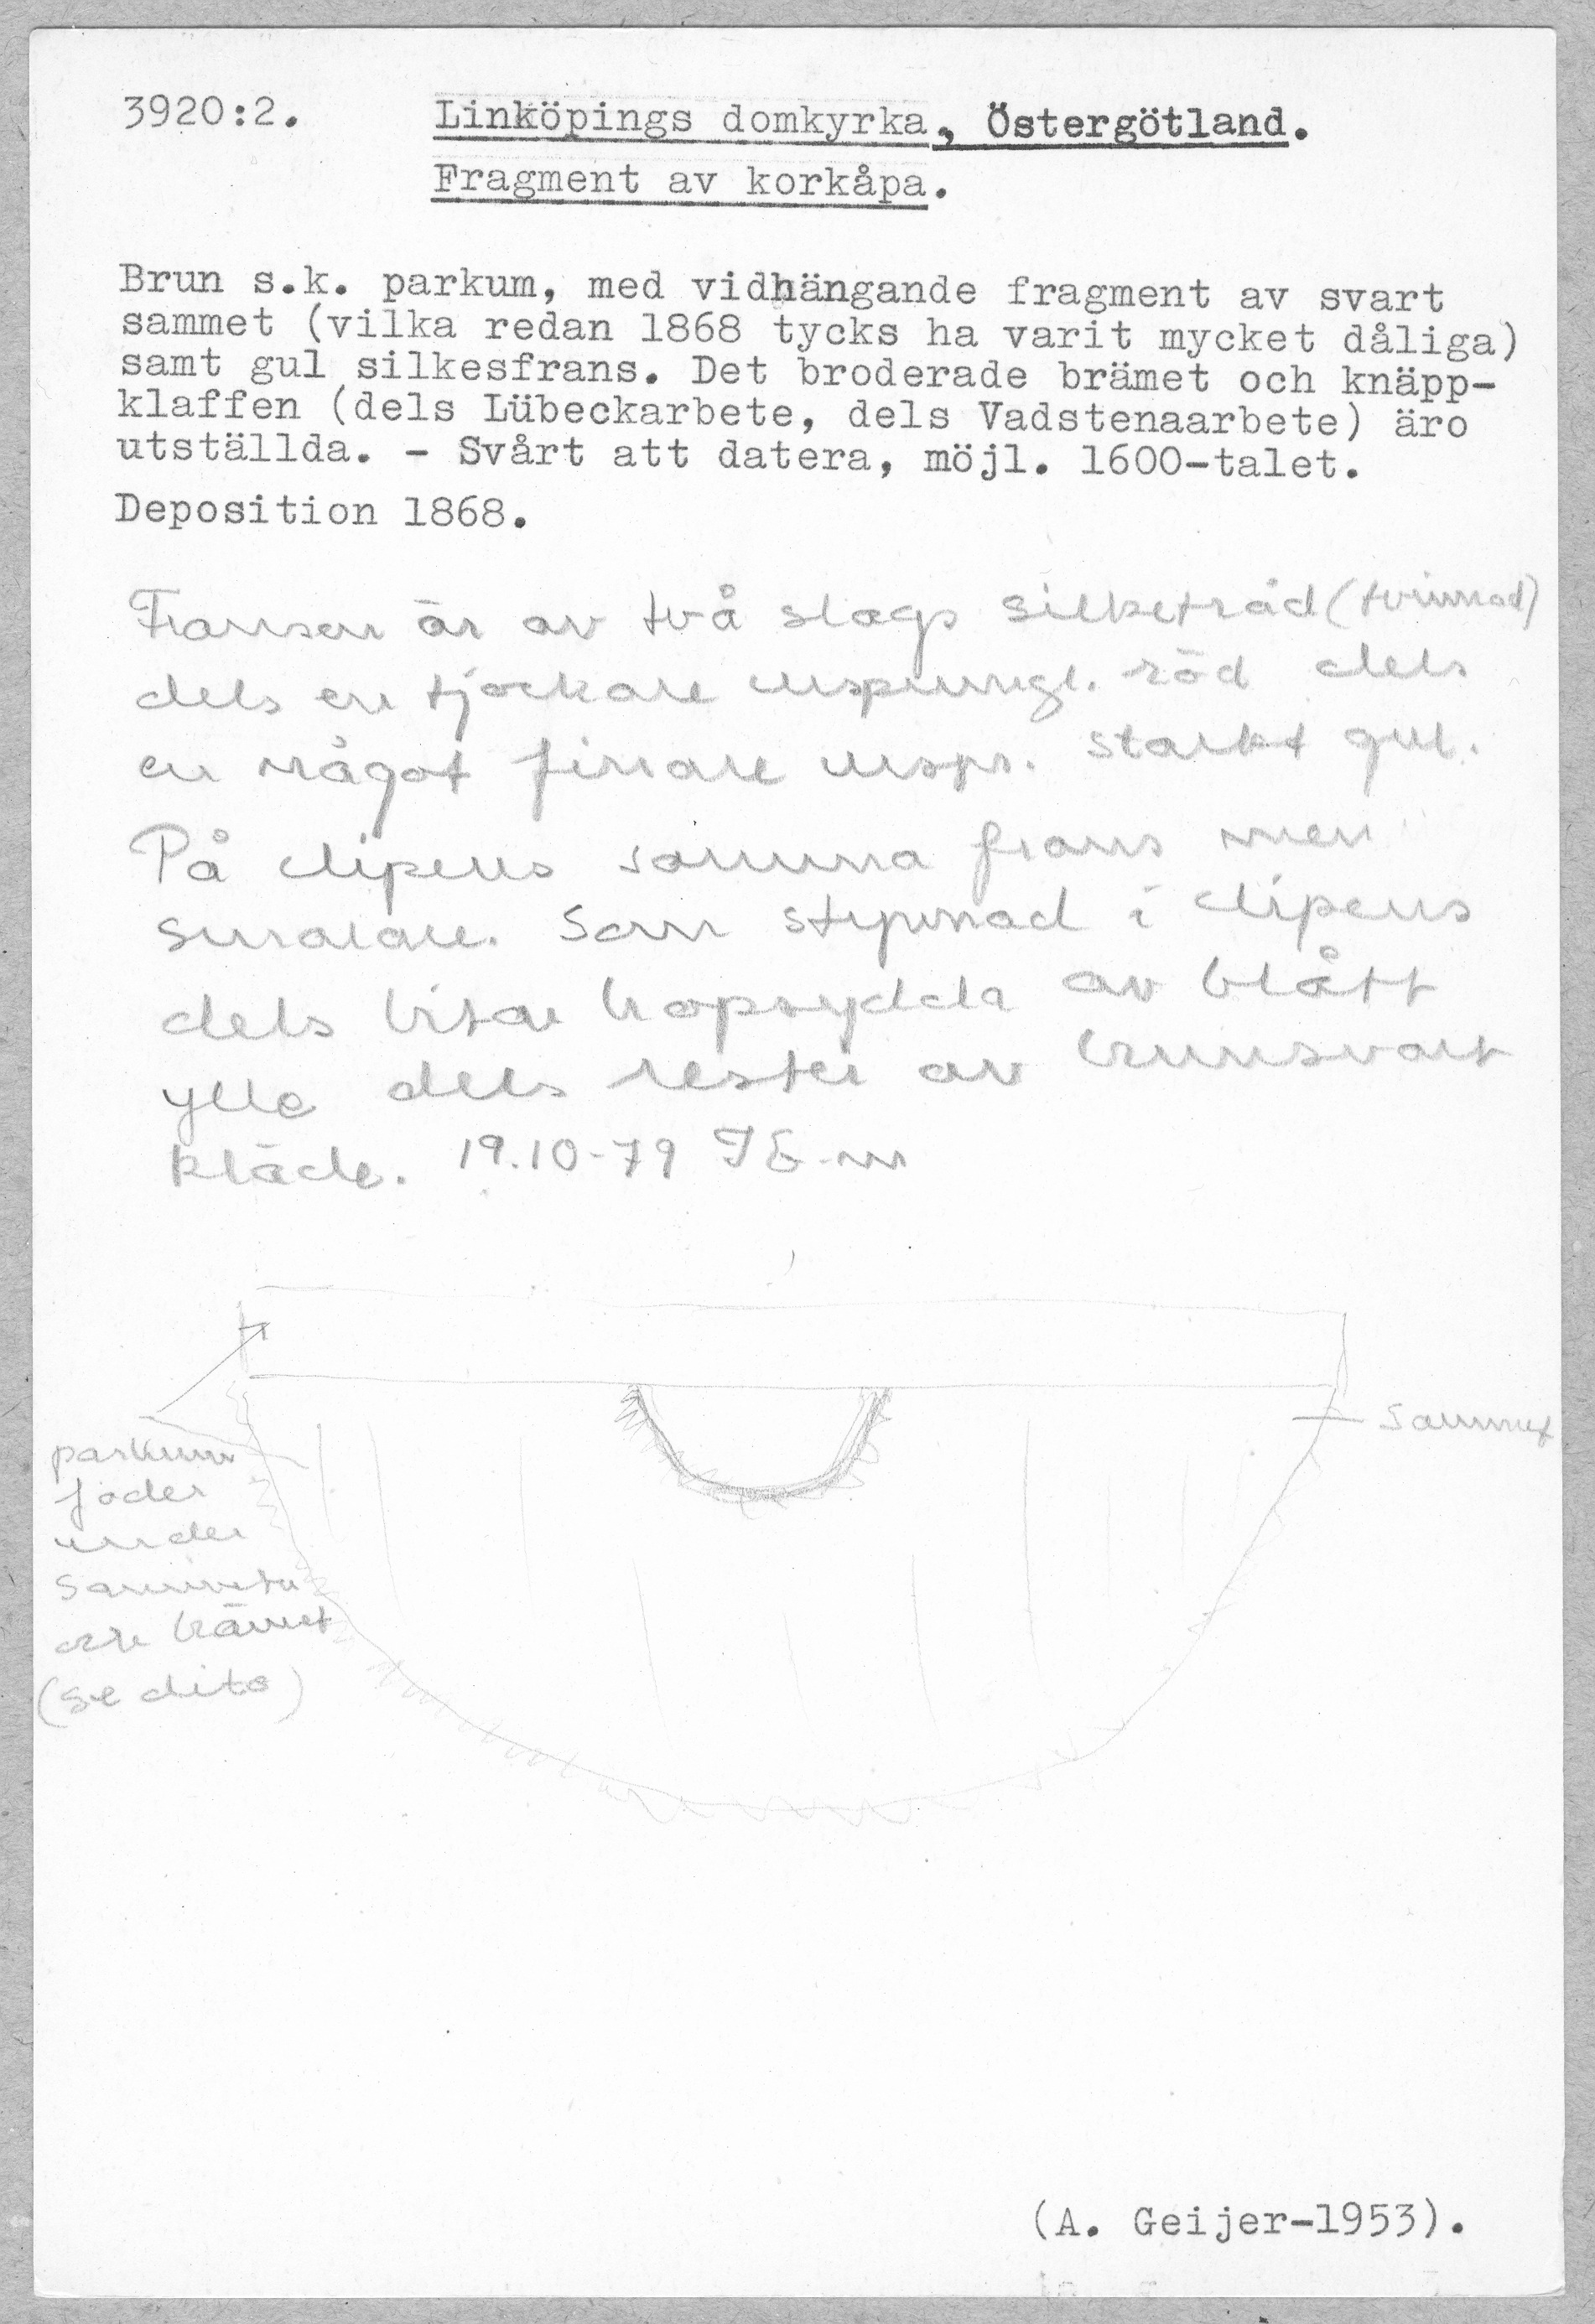 3920:2. Linköpings domkyrka, Östergötland.
Fragment av korkåpa.
Brun s.k. parkum, med vidhängande fragment av svart
sammet (vilka redan 1868 tycks ha varit mycket dåliga)
samt gul silkesfrans. Det broderade brämet och knäpp-
klaffen (dels Lübeckarbete, dels Vadstenaarbete) äro
utställda. - Svårt att datera, möjl. 1600-talet.
Deposition 1868.
Fransen är av två slags silketråd (tvinnad)
dels en tjockare urspringl. röd dels
en något finare urspr. starkt gul.
På clipeus samma frans men
smalare. Som styvnad i clipeus
dels bitar hopsydda av blått
ylle dels rester av brunsvart
kläde. 19.10-79 IE-m
sammet
parkum
foder
under
sammeten
och brämet
(se dito)
(A. Geijer-1953).